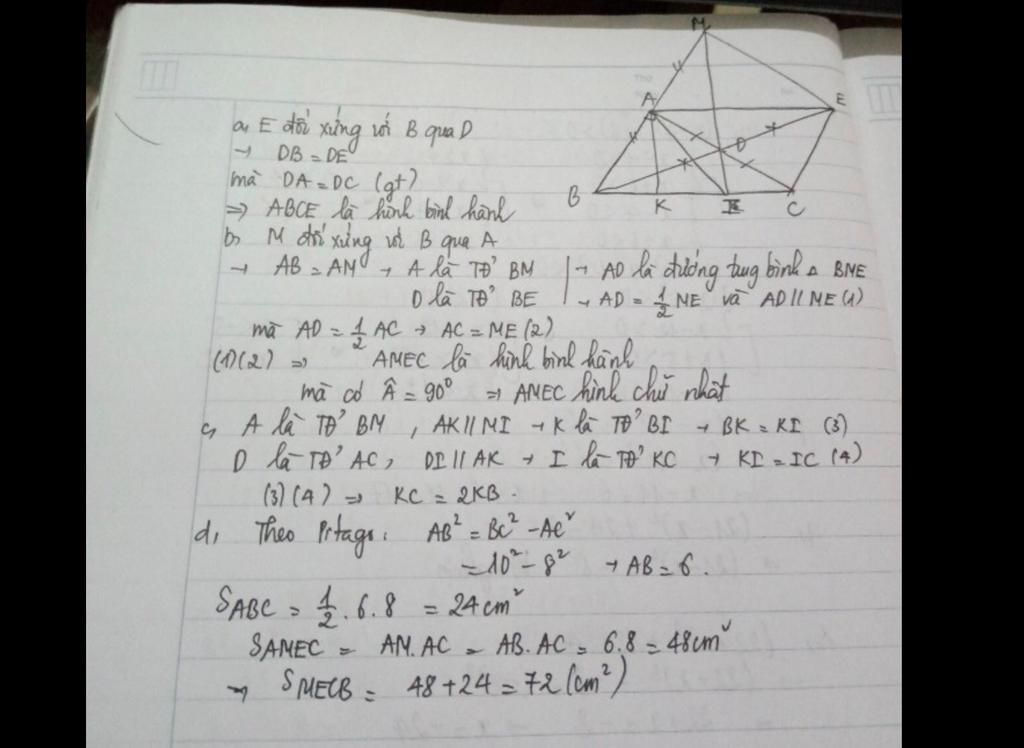 M
A
E
D
B
K
I
C
a, E đối xứng với B qua D
→ DB = DE
mà DA = DC (gt)
⇒ ABCE là hình bình hành
b, M đối xứng với B qua A
→ AB = AM → A là TĐ' BM | → AD là đường tung bình Δ BME
D là TĐ' BE | → AD = 1/2 ME và AD // ME (1)
mà AD = 1/2 AC → AC = ME (2)
(1)(2) ⇒ AMEC là hình bình hành
mà có Â = 90° ⇒ AMEC hình chữ nhật
c, A là TĐ' BM, AK // MI → K là TĐ' BI → BK = KI (3)
D là TĐ' AC, DI // AK → I là TĐ' KC → KI = IC (4)
(3)(4) ⇒ KC = 2KB.
d, Theo Pitago: AB² = BC² - AC²
= 10² - 8² → AB = 6.
S_ABC = 1/2 . 6.8 = 24cm²
S_AMEC = AM.AC = AB.AC = 6.8 = 48cm²
→ S_MECB = 48 + 24 = 72 (cm²)